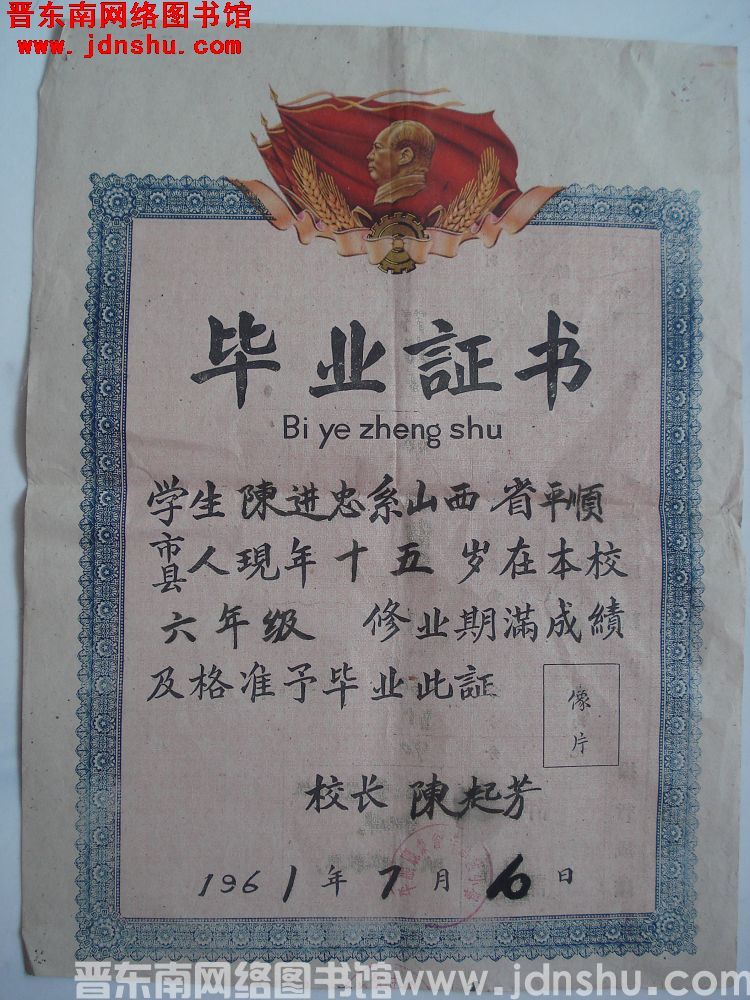 晋东南网络图书馆
www.jdnshu.com
毕业証书
Bi ye zheng shu
学生陳进忠系山西省平順
市县人現年十五岁在本校
六年级 修业期满成績
及格准予毕业此証
像片
校长 陳起芳
1961年7月10日
晋东南网络图书馆www.jdnshu.com